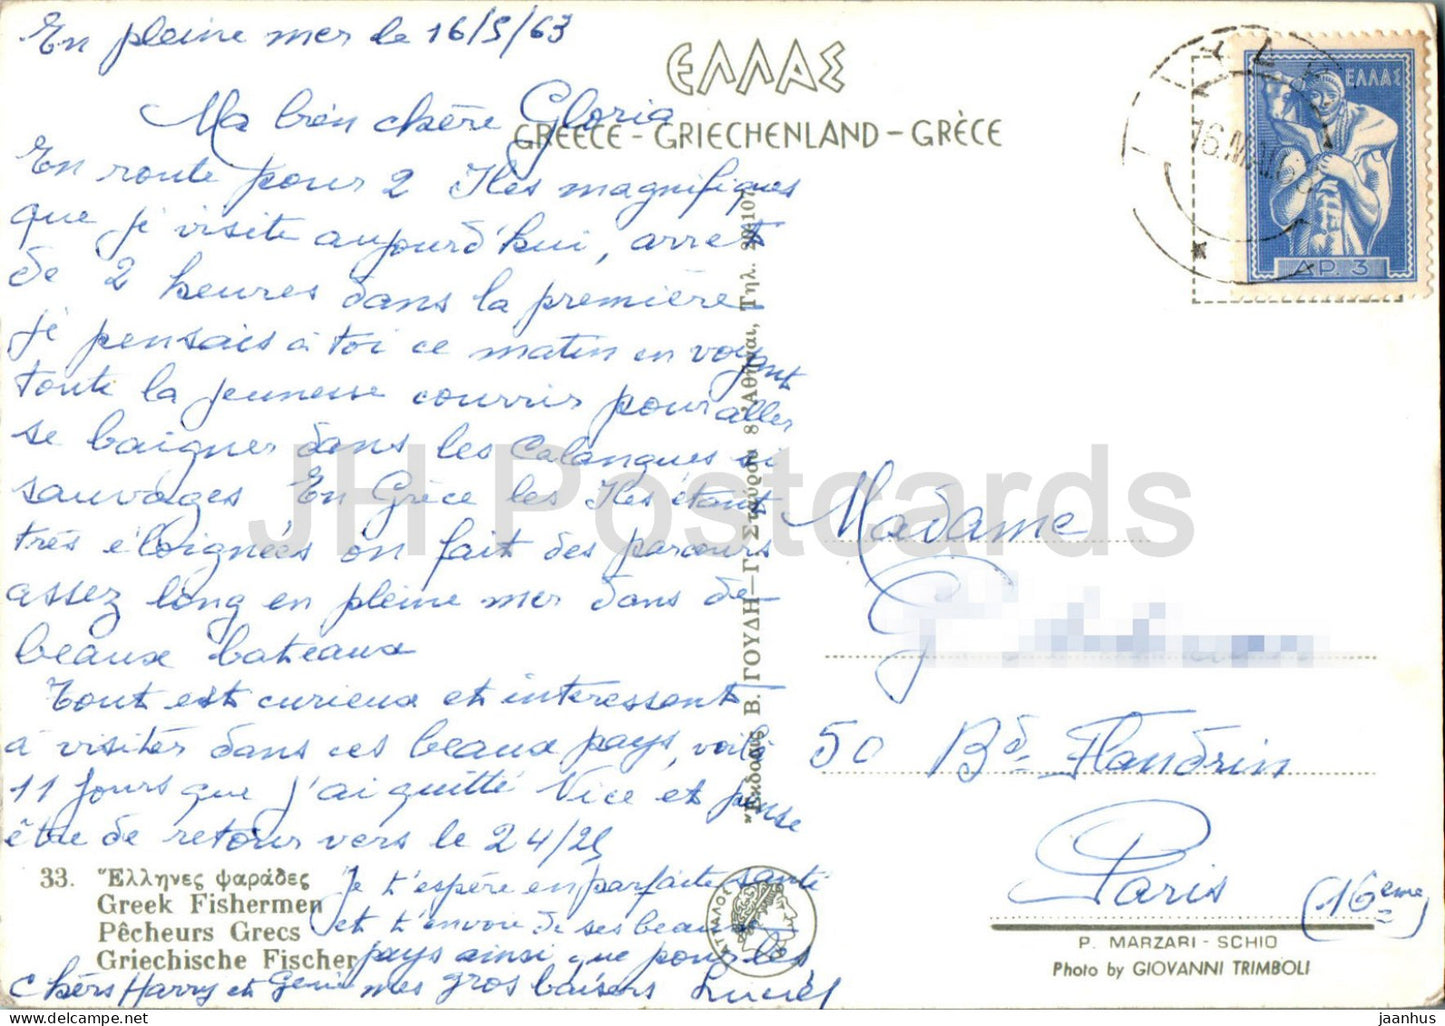 En pleine mer le 16/5/63
Ma bien chère Gloria
En route pour 2 Iles magnifiques
que je visite aujourd'hui, arret
de 2 heures dans la première
je pensais à toi ce matin en voyant
toute la jeunesse courrir pour aller
se baigner dans les Calanques si
sauvages En Grèce les Iles étant
très éloignées on fait des parcours
assez long en pleine mer dans de
beaux bateaux
Tout est curieux et interessant
à visiter dans ces beaux pays, voilà
11 jours que j'ai quitté Nice et pense
être de retour vers le 24/25
Je t'espère en parfaite santé
et t'envoie de ses beaux
pays ainsi que pour les
chers Harry et Geni mes gros baisers
33. Ἕλληνες ψαράδες
Greek Fishermen
Pêcheurs Grecs
Griechische Fischer
ΕΛΛΑΣ
GREECE - GRIECHENLAND - GRÈCE
Ἔκδοσις Β. ΓΟΥΔΗ—Γ. Σταύρου 8 Ἀθῆναι, Τηλ.
ΕΛΛΑΣ
ΔΡ. 3
Madame
50 Bd. Flandrin
Paris (16eme)
P. MARZARI - SCHIO
Photo by GIOVANNI TRIMBOLI
JH Postcards
jaanhus - https://www.delcampe.net